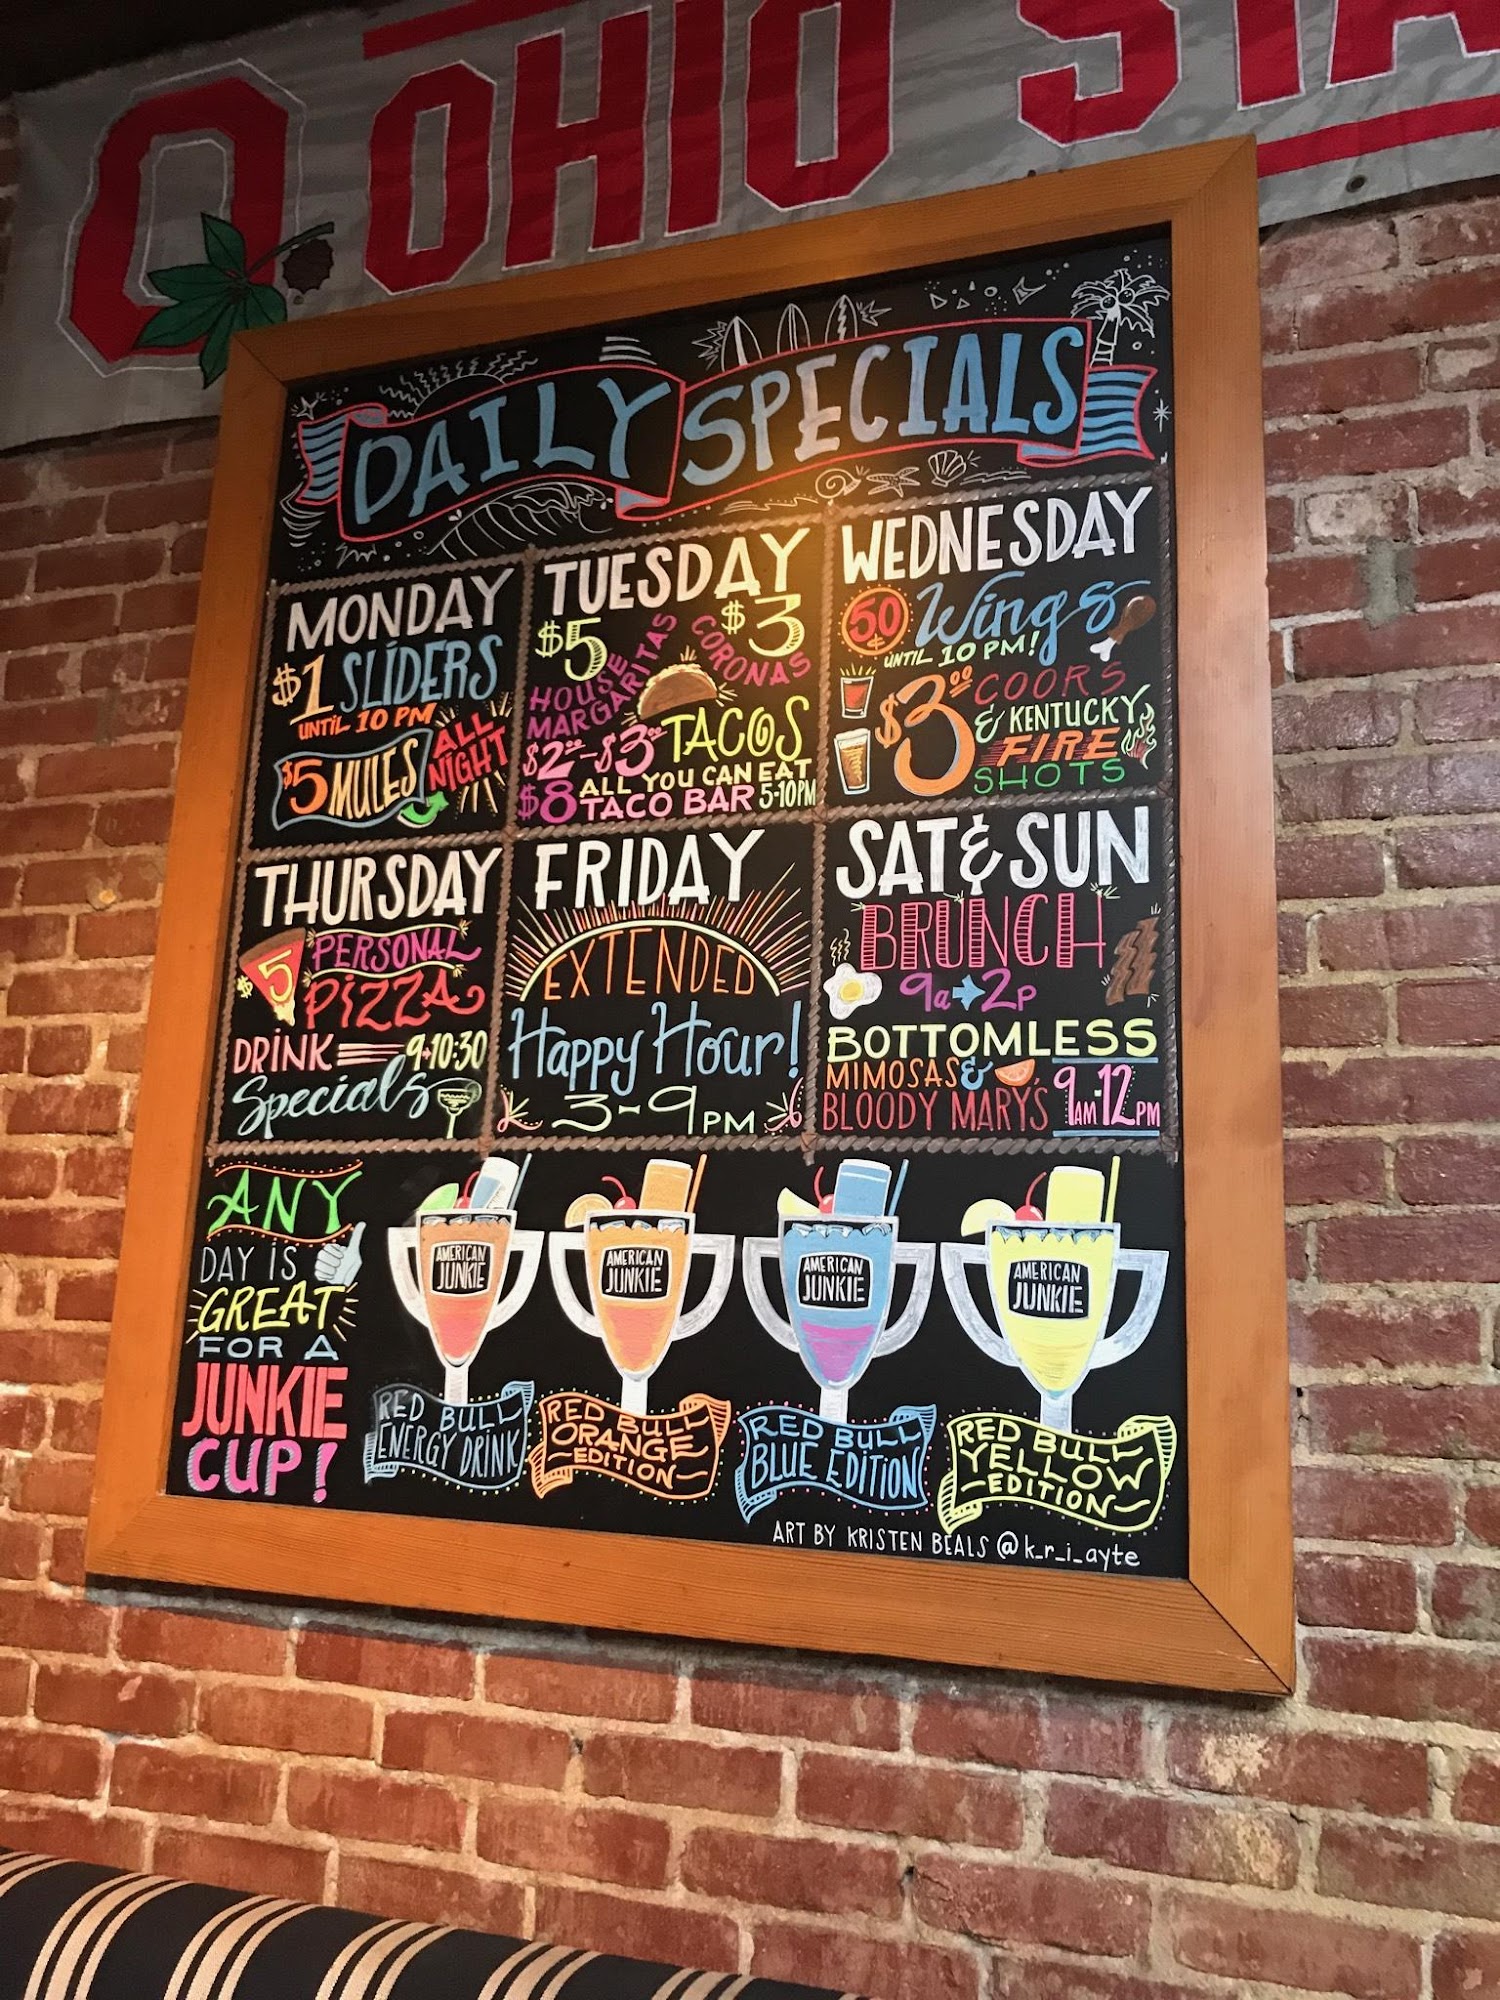 OHIO STA
DAILY SPECIALS
MONDAY
$1 SLIDERS
UNTIL 10 PM
$5 MULES
ALL
NIGHT
TUESDAY
$5 HOUSE
MARGARITAS
$3 CORONAS
$2⁰⁰-$3⁰⁰ TACOS
$8 ALL YOU CAN EAT
TACO BAR 5-10PM
WEDNESDAY
50¢ Wings
UNTIL 10 PM!
$3⁰⁰ COORS
& KENTUCKY
FIRE
SHOTS
THURSDAY
$5 PERSONAL
PIZZA
DRINK 9→10:30
Specials
FRIDAY
EXTENDED
Happy Hour!
3-9PM
SAT & SUN
BRUNCH
9a→2p
BOTTOMLESS
MIMOSAS &
BLOODY MARY'S 9AM-12PM
ANY
DAY IS
GREAT
FOR A
JUNKIE
CUP!
AMERICAN
JUNKIE
RED BULL
ENERGY DRINK
AMERICAN
JUNKIE
RED BULL
ORANGE
-EDITION-
AMERICAN
JUNKIE
RED BULL
BLUE EDITION
AMERICAN
JUNKIE
RED BULL
YELLOW
-EDITION-
ART BY KRISTEN BEALS @k_r_i_ayte